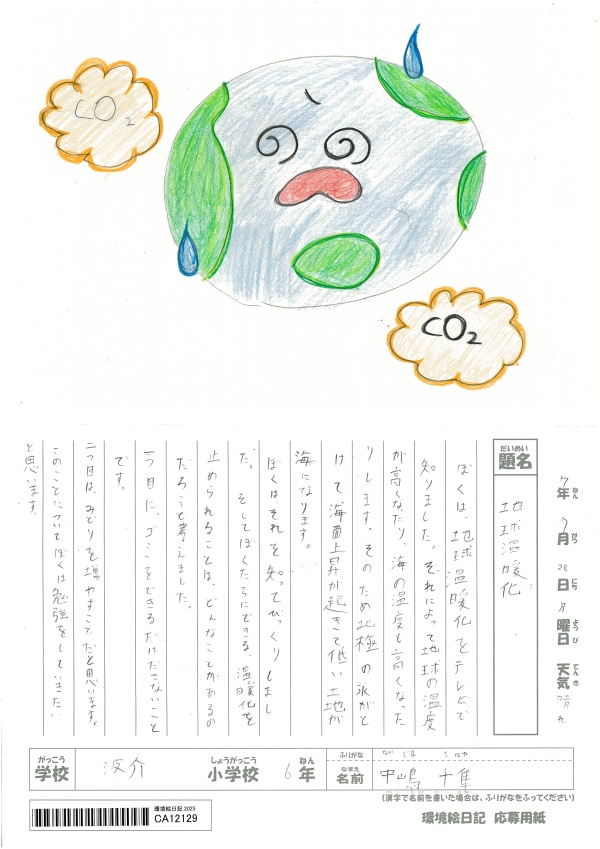 CO2
CO2
7年 7月 28日 月曜日 天気 晴れ
ねん がつ にち ようび てんき
だいめい
題名
地球温暖化
ぼくは、地球温暖化をテレビで
知りました。それによって地球の温度
が高くなたり、海の温度も高くなった
りします。そのため北極の氷がと
けて海面上昇が起きて低い土地が
海になります。
ぼくはそれを知ってびっくりしまし
た。そしてぼくたちにできる、温暖化を
止められることは、どんなことがあるの
だろうと考えました。
一つ目に、ゴミをできるだけださないこと
です。
二つ目は、みどりを増やすことだと思います。
このことについてぼくは勉強をしていきたい
と思います。
がっこう しょうがっこう ねん
学校 波介 小学校 6年
ふりがな なかじま
なまえ
名前 中嶋 千隼
(漢字で名前を書いた場合は、ふりがなをふってください)
環境絵日記 2025
CA12129
環境絵日記 応募用紙